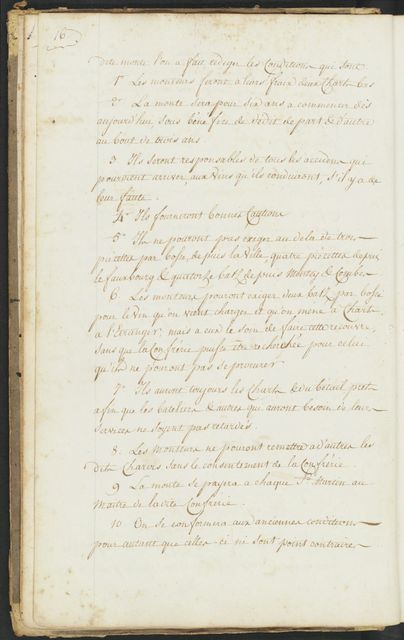 16
dite monte l'on a fait rédiger les Conditions qui sont
1° Les monteurs feront à leurs fraix deux Charts
2° La monte sera pour six ans a commencer dès
aujourd'hui, sous bénéfice de dédit de part & d'autre
au bout de trois ans.
3 Ils seront responsables de tous les accidens qui
pourroient arriver, aux vins qu'ils conduiront, s'il y a de
leur faute.
4° Ils fourniront bonnes Cautions
5° Ils ne pouront pas exiger au dela de trois
piécettes par bosse, depuis la Ville, quatre piécettes depuis
le fauxbourg & quatorze batz depuis Montey &
6. Les monteurs pouront exiger deux batz par bosse
pour le vin qu'on vient charger et qu'on mene à Charts
à l'Etranger; mais a eux le soin de faire cette recouvre,
sans que la Confrérie puisse être recherchée pour celui
qu'ils ne pouront pas se procurer
7° Ils auront toujours les Charts & du Bétail prets
afin que les bateliers & autres qui auront besoin de leur
services ne soyent pas retardés.
8. Les Monteurs ne pouront remettre a d'autres les
dits Charrois sans le consentement de la Confrérie.
9 La monte se payera à chaque St. Martin au
Maitre de la dite Confrérie.
10 On se conformera aux anciennes conditions
pour autant que celles-ci ne sont point contraire